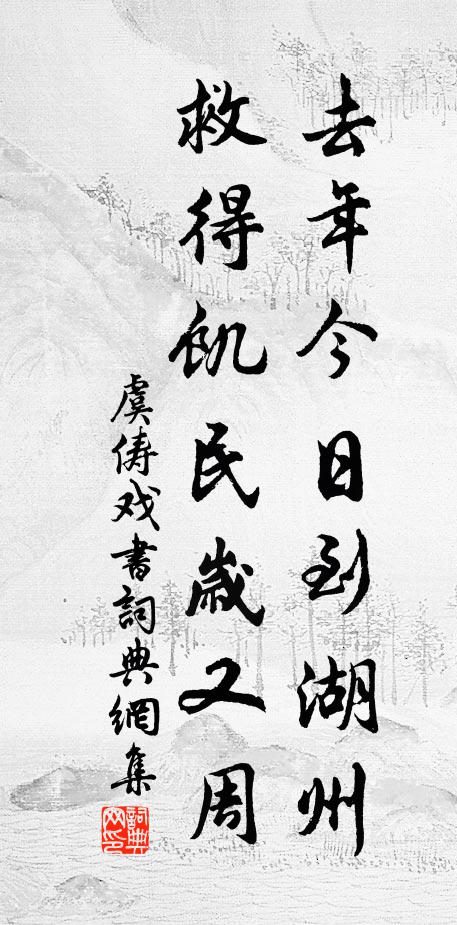 去年今日到湖州
救得飢民歲又周
虞俦戏書詞典網集
詞典网印